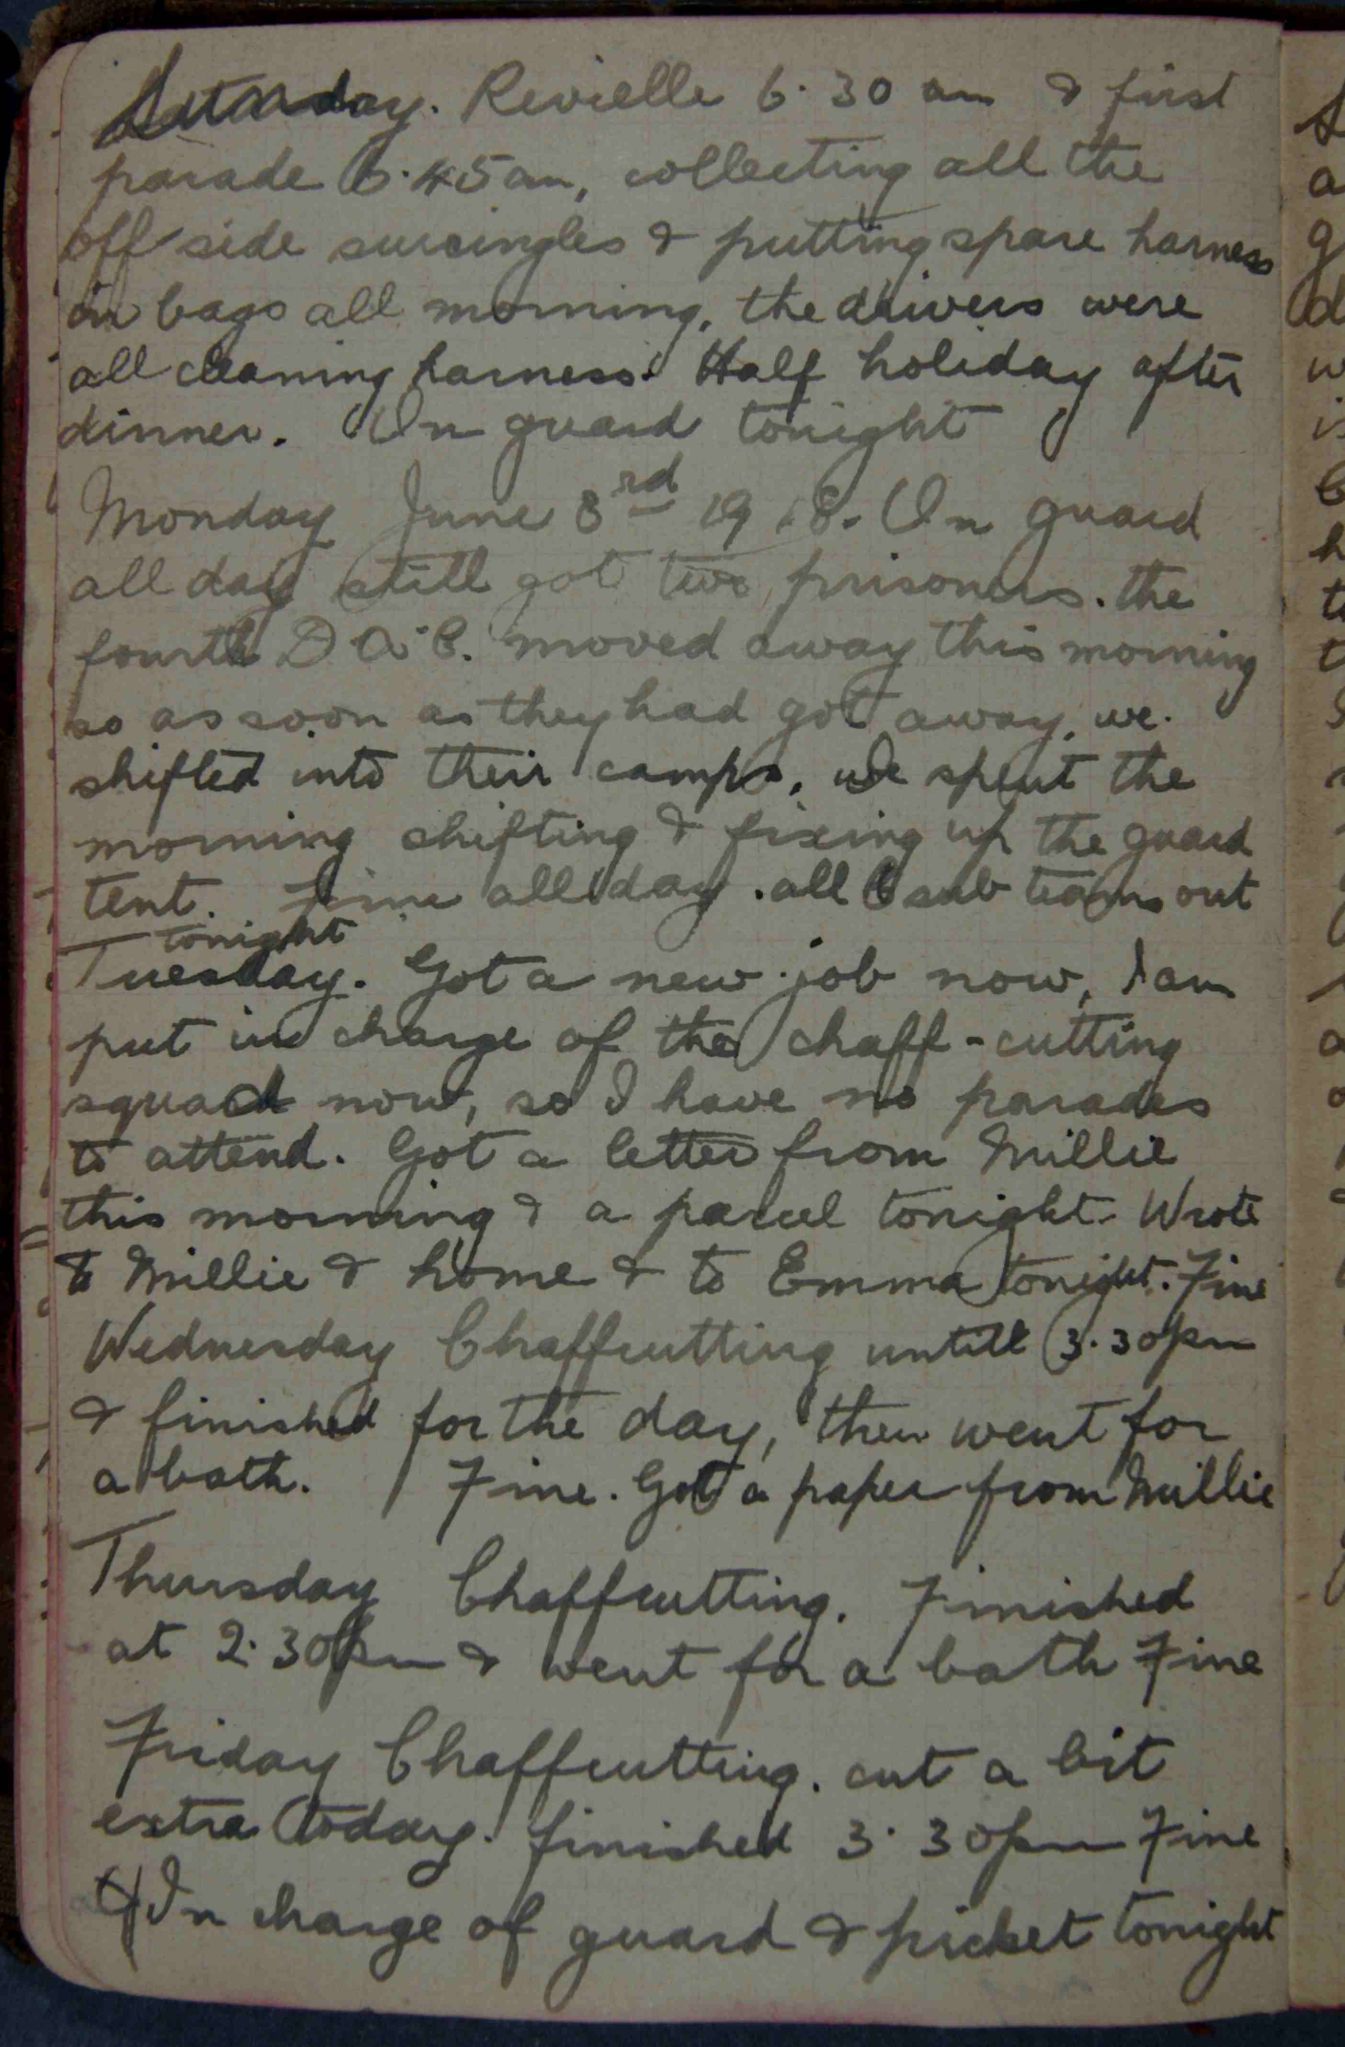 Saturday. Revielle 6.30 am & first
parade 6.45 am, collecting all the
off side surcingles & putting spare harness
in bags all morning, the drivers were
all cleaning harness. Half holiday after
dinner. On guard tonight
Monday June 3rd 1918. On guard
all day still got two prisoners. the
fourth D.A.C. moved away this morning
so as soon as they had got away, we
shifted into their camp, we spent the
morning shifting & fixing up the guard
tent. Fine all day. all sub teams out
tonight
Tuesday. Got a new job now, I am
put in charge of the chaff-cutting
squad now, so I have no parades
to attend. Got a letter from Millie
this morning & a parcel tonight. Wrote
to Millie & home & to Emma tonight. Fine
Wednesday Chaffcutting untill 3.30pm
& finished for the day, then went for
a bath. Fine. Got a paper from Millie
Thursday Chaffcutting. Finished
at 2.30pm & went for a bath Fine
Friday Chaffcutting. cut a bit
extra today. finished 3.30pm Fine
In charge of guard & picket tonight